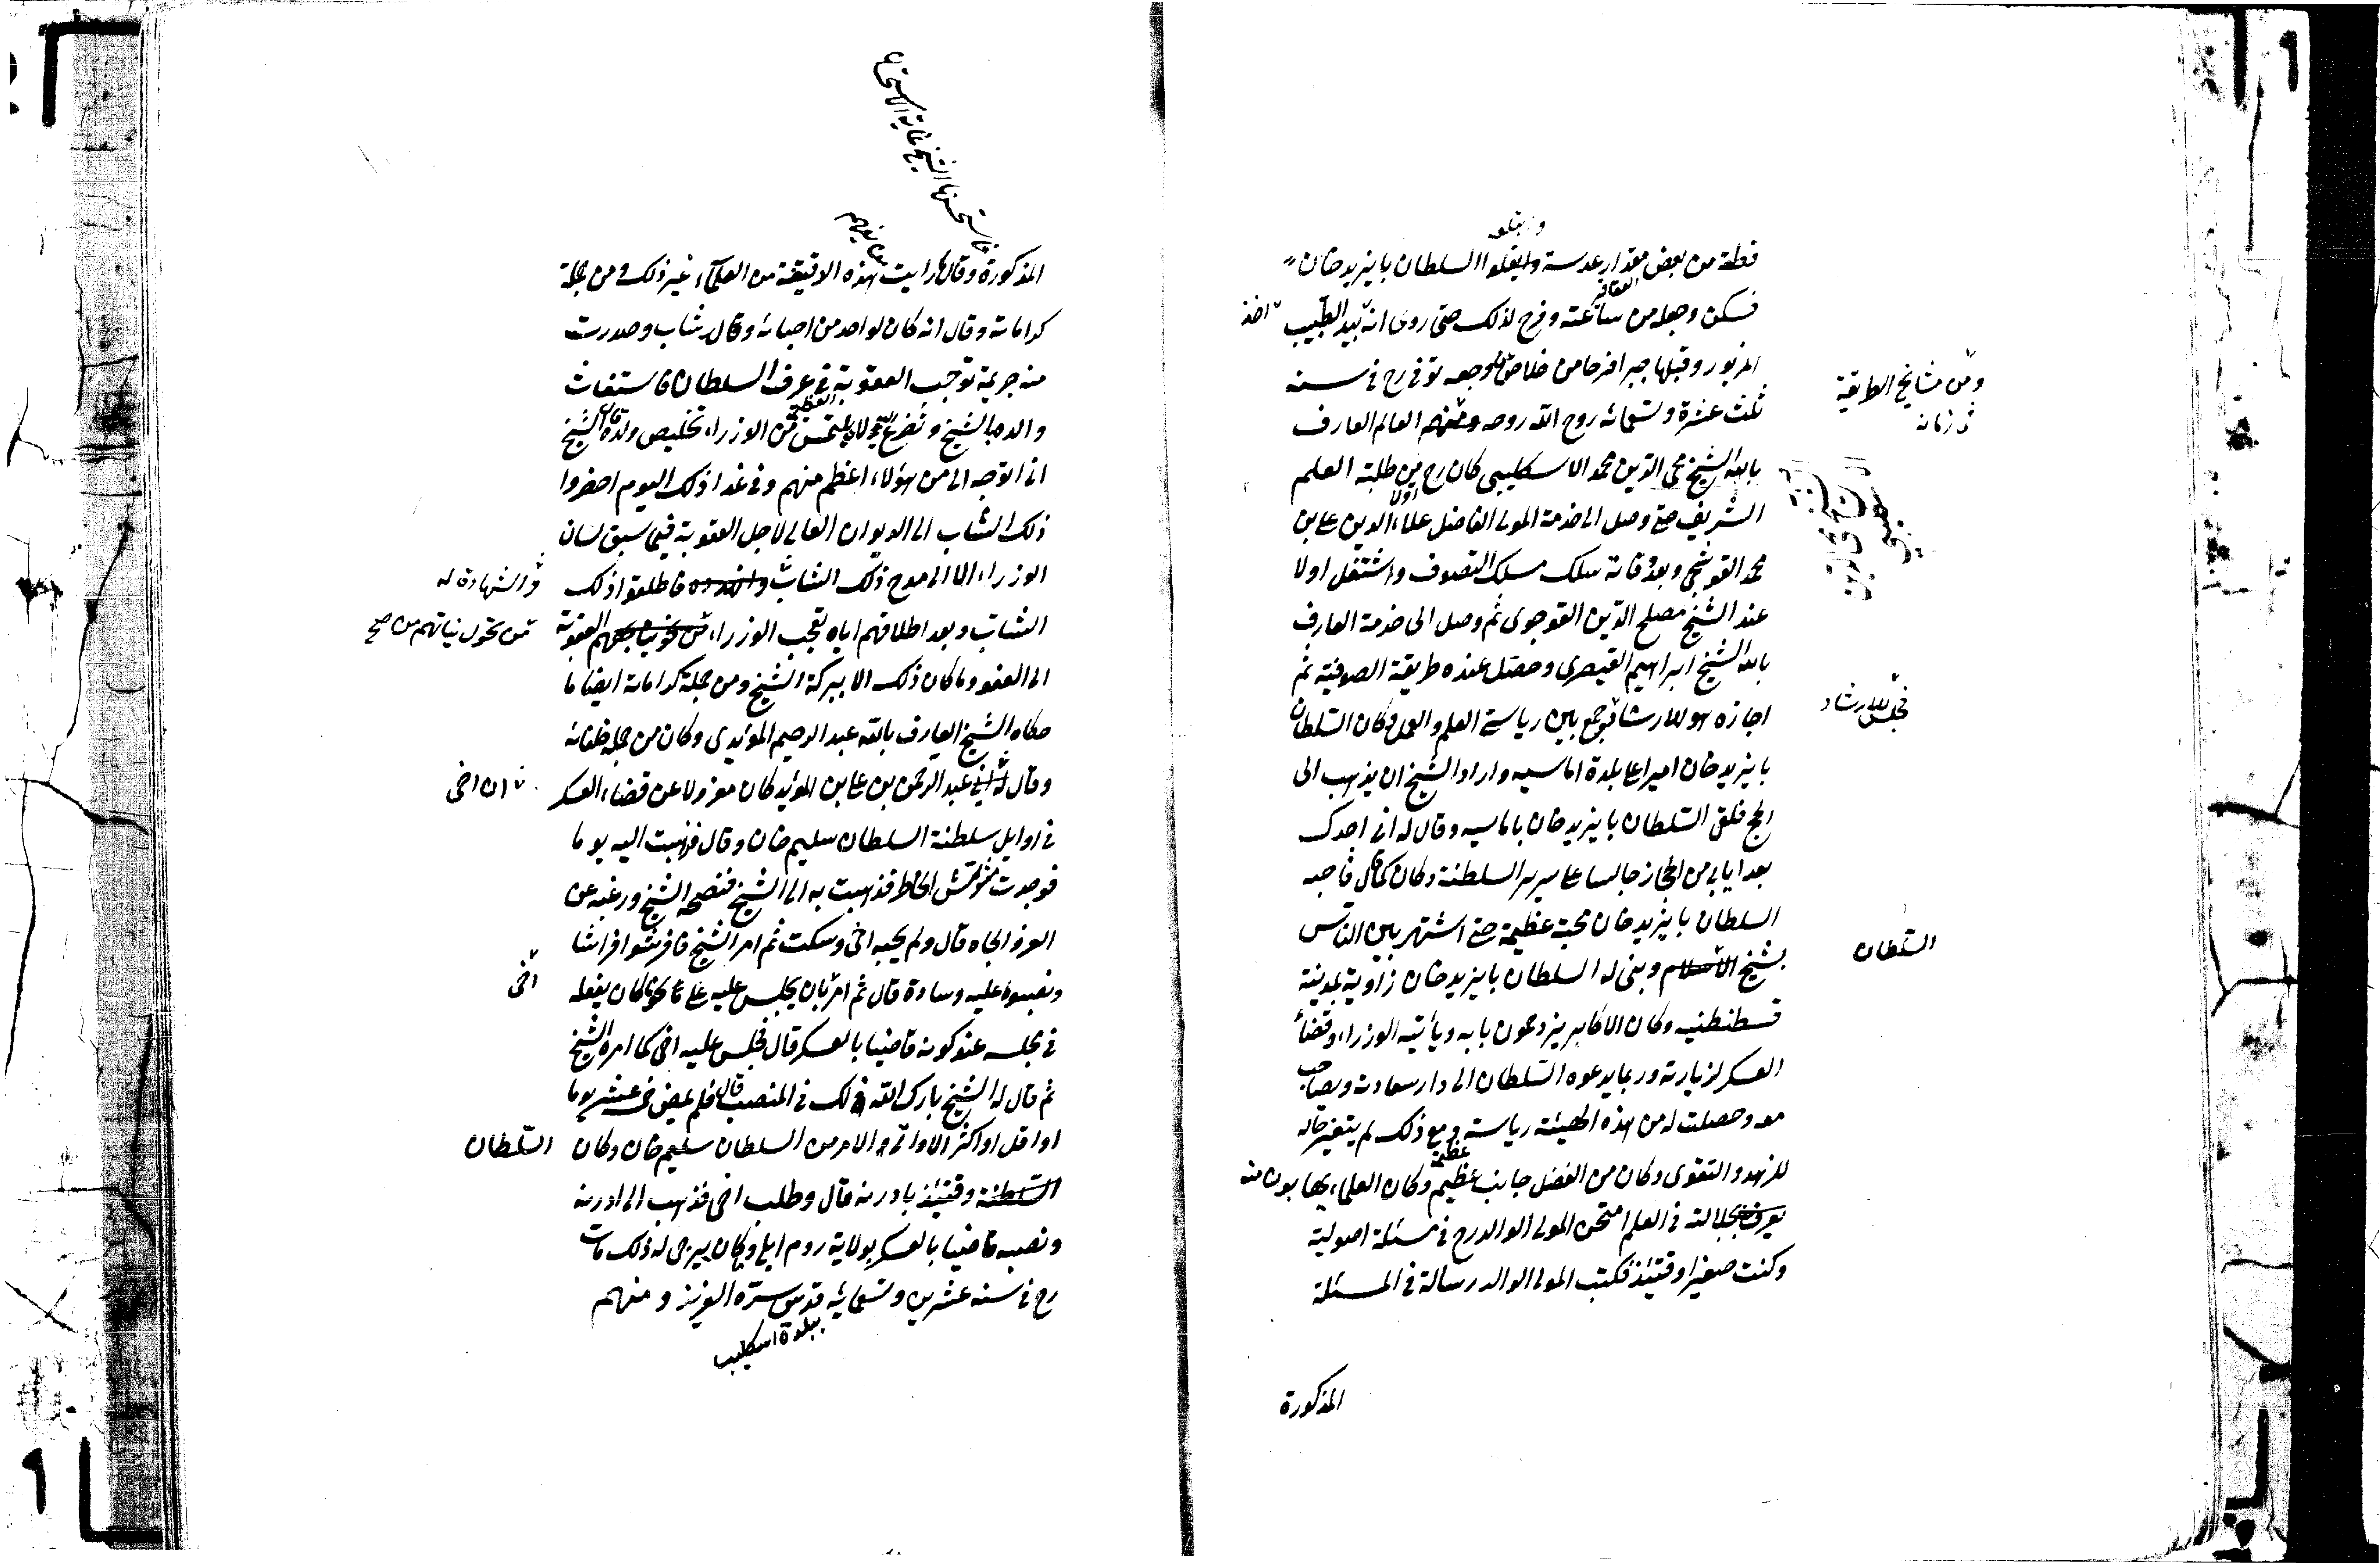 قطعة من بعض مقدار عدسة وابتلعوا السلطان بايزيد خان
وابتلعه
فسكن وجعله من ساعته وفرح لذلك حتى روى انه بيد الطبيب اخذ
المزبور وقبلها جبرا فرحا من خلاص وجعه توفى رح فى سنة
ثلث عشرة وتسعمائه روح الله روحه ومنهم العالم العارف
ومن مشايخ الطريقة
فى زمانه
بالله الشيخ محى الدين محمد الاسكليبى كان رح من طلبة العلم
الشريف حتى وصل الى خدمة المولى الفاضل علاء الدين على بن
اولا
محمد القوشجى وبعد وفاته سلك مسلك التصوف واشتغل اولا
عند الشيخ مصلح الدين القوجوى ثم وصل الى خدمة العارف
بالله الشيخ ابراهيم القيصرى وحصل عنده طريقة الصوفية ثم
اجازه هو للارشاد فجمع بين رياسة العلم والعمل وكان السلطان
فجلس للارشاد
بايزيد خان اميرا على بلدة اماسيه واراد الشيخ ان يذهب الى
الحج فلقى السلطان بايزيد خان باماسيه وقال له انى اجدك
بعد ايابى من الحجاز جالسا على سرير السلطنة وكان كما قال فاحبه
السلطان بايزيد خان محبة عظيمة حتى اشتهر بين الناس
بشيخ الاسلام وبنى له السلطان بايزيد خان زاوية بمدينة
السلطان
قسطنطنيه وكان الاكابر يزدحمون بابه ويأتيه الوزراء وقضاة
العسكر لزيارته وربما يدعوه السلطان الى دار سعادته ويصاحب
معه وحصلت له من هذه الهيئة رياسة ومع ذلك لم يتغير حاله
عظيمة
للزهد والتقوى وكان من الفضل جانب عظيم وكان العلماء يهابون منه
يعرف بجلالته فى العلم امتحن المولى الوالد رح فى مسئلة اصولية
وكنت صغيرا وقتئذ فكتب المولى الوالد رسالة فى المسئلة
المذكورة
فاستحسنها الشيخ غاية الاستحسان
المذكورة وقال ما رايت هذه الدقيقة من العلماء غير ذلك ومن جملة
كراماته وقال انه كان لواحد من احبائه وقال شاب وصدرت
منه جريمة توجب العقوبة فى عرف السلطان فاستغاث
والده بالشيخ وتضرع اليه لان يلتمس من الوزراء تخليص ولده قال الشيخ
العظيم
انى اتوجه الى من هؤلاء اعظم منهم وفى غد اذلك اليوم احضروا
ذلك الشاب الى الديوان العالى لاجل العقوبة فيما سبق لسان
الوزراء الا الى مدح ذلك الشاب فاطلقوا ذلك
والشهادة له
الشاب وبعد اطلاقهم اياه تعجب الوزراء من العقوبة
من تحول نياتهم من
الى العفو وما كان ذلك الا ببركة الشيخ ومن جملة كراماته ايضا ما
حكاه الشيخ العارف بالله عبد الرحيم المؤيدى وكان من جملة خلفائه
وقال عبد الرحمن بن على بن المؤيد كان معزولا عن قضاء العسكر
ان اخى
فى اوايل سلطنة السلطان سليم خان وقال فذهبت اليه يوما
فوجدت مشوش الخاطر فذهبت به الى الشيخ فنصحه الشيخ ورغبه عن
العز والجاه قال ولم يجبه اخى وسكت ثم امر الشيخ فافرشوا فراشا
ونصبوا عليه وسادة قال ثم امر بان يجلس عليه على ما كان يفعله
اخى
فى مجلسه عند كونه قاضيا بالعسكر قال فجلس عليه اخى كما امره الشيخ
ثم قال له الشيخ بارك الله لك فى المنصب قال فلم يمض خمسة عشر يوما
او اقل او اكثر الا واتى الامر من السلطان سليم خان وكان
السلطان
السلطنة وقتئذ بادرنه قال وطلب اخى فذهب الى ادرنه
ونصبه قاضيا بالعسكر بولاية روم ايلى وكان يرجى له ذلك مات
رح فى سنه عشرين وتسعمائه قدس سره العزيز ومنهم
ببلدة اسكليب